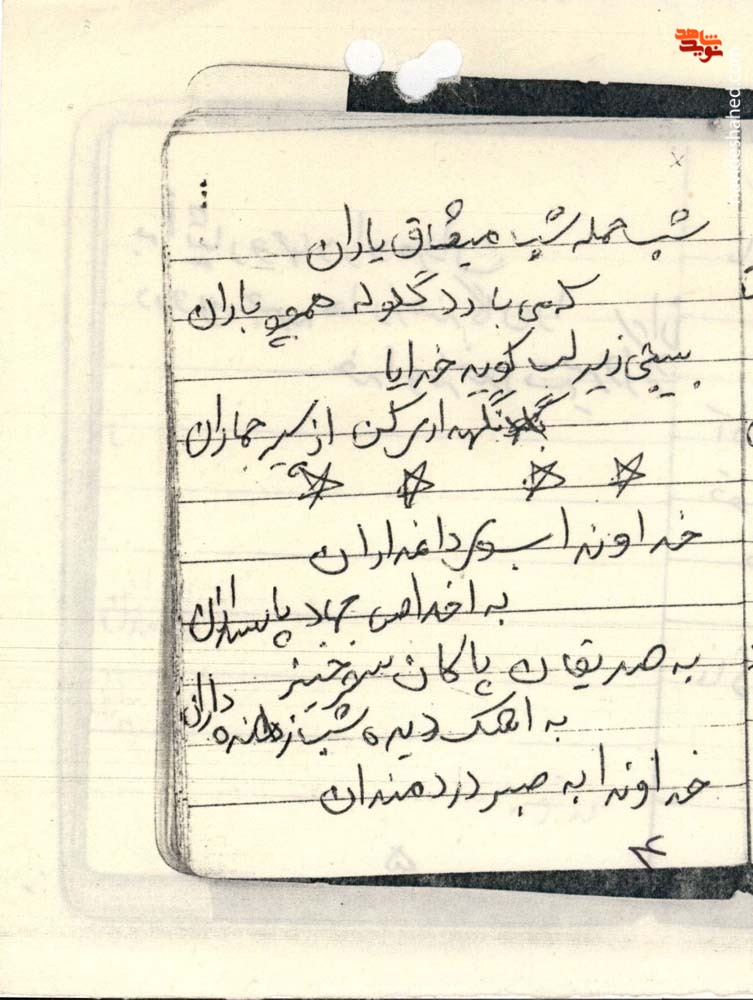 نوید شاهد
navideshahed.com
شب حمله شب میقات یاران
که می بارد گلوله همچو باران
بسیجی زیر لب گوید خدایا
نگهداری کن از پیر جماران
خداوندا بسوی داغداران
به اخلاص جهاد پاسداران
به صدیقان پاکان سحرخیز
به اشک دیده شب زنده داران
خداوندا به صبر دردمندان
۴
۵